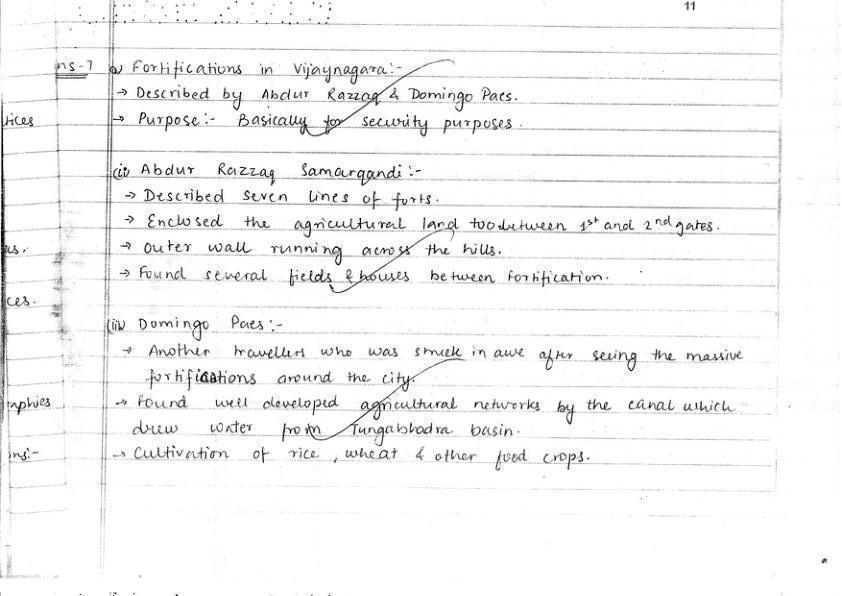 11
ns-7 a) Fortifications in Vijaynagara:-
→ Described by Abdur Razzaq & Domingo Paes.
tices → Purpose:- Basically for security purposes.
(ii) Abdur Razzaq Samarqandi :-
→ Described seven lines of forts.
→ Enclosed the agricultural land too between 1st and 2nd gates.
us. → Outer wall running across the hills.
→ Found several fields & houses between fortification.
ces.
(iii) Domingo Paes:-
→ Another travellers who was struck in awe after seeing the massive
fortifications around the city.
raphies → Found well developed agricultural networks by the canal which
drew water from Tungabhadra basin.
ins:- → Cultivation of rice, wheat & other food crops.